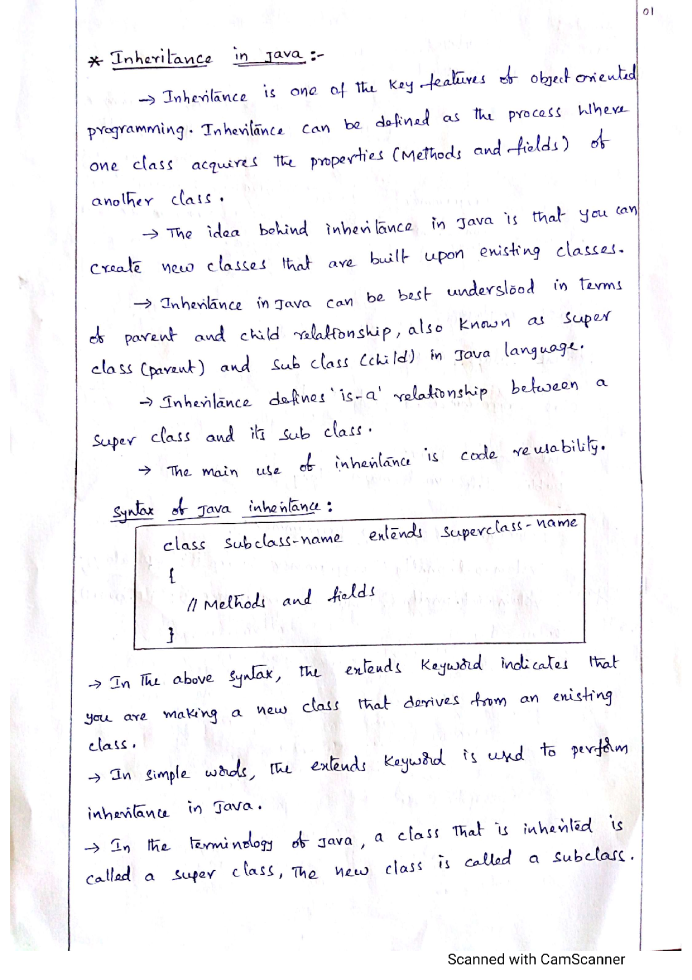 01
* Inheritance in Java :-
→ Inheritance is one of the key features of object oriented
programming. Inheritance can be defined as the process where
one class acquires the properties (Methods and fields) of
another class.
→ The idea behind inheritance in Java is that you can
create new classes that are built upon existing classes.
→ Inheritance in Java can be best understood in terms
of parent and child relationship, also known as super
class (parent) and sub class (child) in Java language.
→ Inheritance defines 'is-a' relationship between a
super class and its sub class.
→ The main use of inheritance is code reusability.
Syntax of Java inheritance :
class subclass-name extends superclass-name
{
// Methods and fields
}
→ In the above syntax, the extends keyword indicates that
you are making a new class that derives from an existing
class.
→ In simple words, the extends keyword is used to perform
inheritance in Java.
→ In the terminology of Java, a class that is inherited is
called a super class, The new class is called a subclass.
Scanned with CamScanner